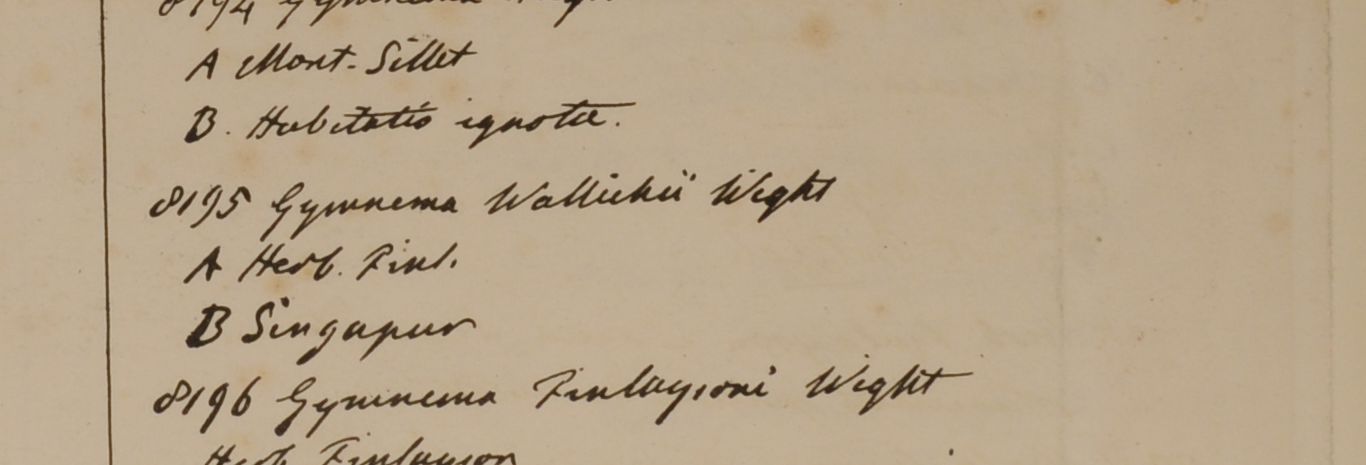 8194 Gymnema
A Mont. Sillet
B. Habitatio ignota.
8195 Gymnema Wallichii Wight
A Herb. Finl.
B Singapur
8196 Gymnema Finlaysoni Wight
Herb. Finlayson